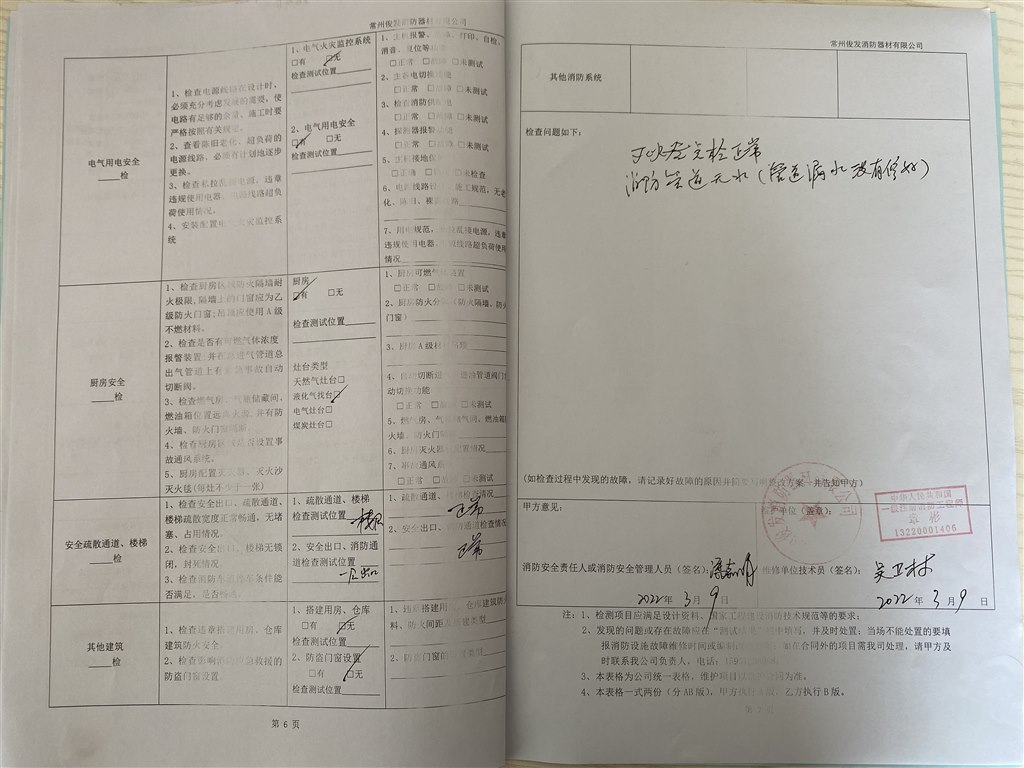 常州俊发消防器材有限公司
电气用电安全
____检
1、检查电源线路在设计时,
必须充分考虑发展的需要,使
电路有足够的余量、施工时要
严格按照有关规定。
2、查看陈旧老化、超负荷的
电源线路,必须有计划地逐步
更换。
3、检查私拉乱接电源、违章
违规使用电器、电源线路超负
荷使用情况。
4、安装配置电气火灾监控系
统
1、电气火灾监控系统
□有 □无
检查测试位置
2、电气用电安全
□有 □无
检查测试位置
1、主机报警、 打印、自检、
消音、复位等功能
□正常 □故障 □未测试
2、主备电切换功能
□正常 □故障 □未测试
3、检查消防供配电
□正常 □故障 □未测试
4、探测器报警功能
□正常 □故障 □未测试
5、主机接地保护
□正常 □故障 □未测试
6、电源线路设 施工规范,无老
化、陈旧、裸 路
7、用电规范, 乱接电源、违章
违规使用电器、 源线路超负荷使用
情况
厨房安全
____检
1、检查厨房区域防火隔墙耐
火极限,隔墙上的门窗应为乙
级防火门窗;吊顶应使用 A 级
不燃材料。
2、检查是否有可燃气体浓度
报警装置;并在总进气管道总
出气管道上有紧急事故自动
切断阀。
3、检查燃气房、气瓶储藏间,
燃油箱位置远离火源,并有防
火墙、防火门窗隔断。
4、检查厨房区域是否设置事
故通风系统。
5、厨房配置灭火器、灭火沙
灭火毯(每灶不少于一张)
厨房
□有 □无
检查测试位置
灶台类型
天然气灶台□
液化气找台□
电气灶台□
煤炭灶台□
1、厨房可燃气体装置
□正常 □故障 □未测试
2、厨房防火分 (防火隔墙、防火
门窗)
3、厨房 A 级材料吊顶
4、自动切断进 进油管道阀门自
动切换功能
□正常 □故障 □未测试
5、燃气房、气 间、燃油箱
火墙、防火门
6、厨房灭火器 配置情况
7、事故通风系
□正常 □故障 □未测试
安全疏散通道、楼梯
____检
1、检查安全出口、疏散通道、
楼梯疏散宽度正常畅通,无堵
塞、占用情况。
2、检查安全出口、楼梯无锁
闭,封死情况
3、检查消防车道停车条件能
否满足,是否畅通
1、疏散通道、楼梯
检查测试位置 一楼
2、安全出口、消防通
道检查位置
一层出口
1、疏散通道、楼梯检查情况
正常
2、安全出口、消防通道检查情况
正常
其他建筑
____检
1、检查违章搭建用房、仓库
建筑防火安全
2、检查影响消防应急救援的
防盗门窗设置
1、搭建用房、仓库
□有 □无
检查测试位置
2、防盗门窗设置
□有 □无
检查测试位置
1、违章搭建用房、仓库建筑防火
料、防火间距及搭建类型
2、防盗门窗的设置类型
第 6 页
常州俊发消防器材有限公司
其他消防系统
检查问题如下:
正常
消防管道无水(管道漏水没有修好)
(如检查过程中发现的故障,请记录好故障的原因并简要写明整改方案 并告知甲方)
甲方意见:
单位(盖章):
中华人民共和国
一级注册消防工程师
13220001406
消防安全责任人或消防安全管理人员(签名):
维修单位技术员(签名): 吴卫林
2022 年 3 月 9 日
2022 年 3 月 9 日
注:1、检测项目应满足设计资料、国家工程建设消防技术规范等的要求;
2、发现的问题或存在故障应在“测试结果”栏中填写,并及时处置;当场不能处置的要填
报消防设施故障维修时间或编制 如在合同外的项目需我司处理,请甲方及
时联系我公司负责人,电话:
3、本表格为公司统一表格,维护项目以维护合同为准。
4、本表格一式两份(分 AB 版),甲方执行 A 版,乙方执行 B 版。
第 7 页